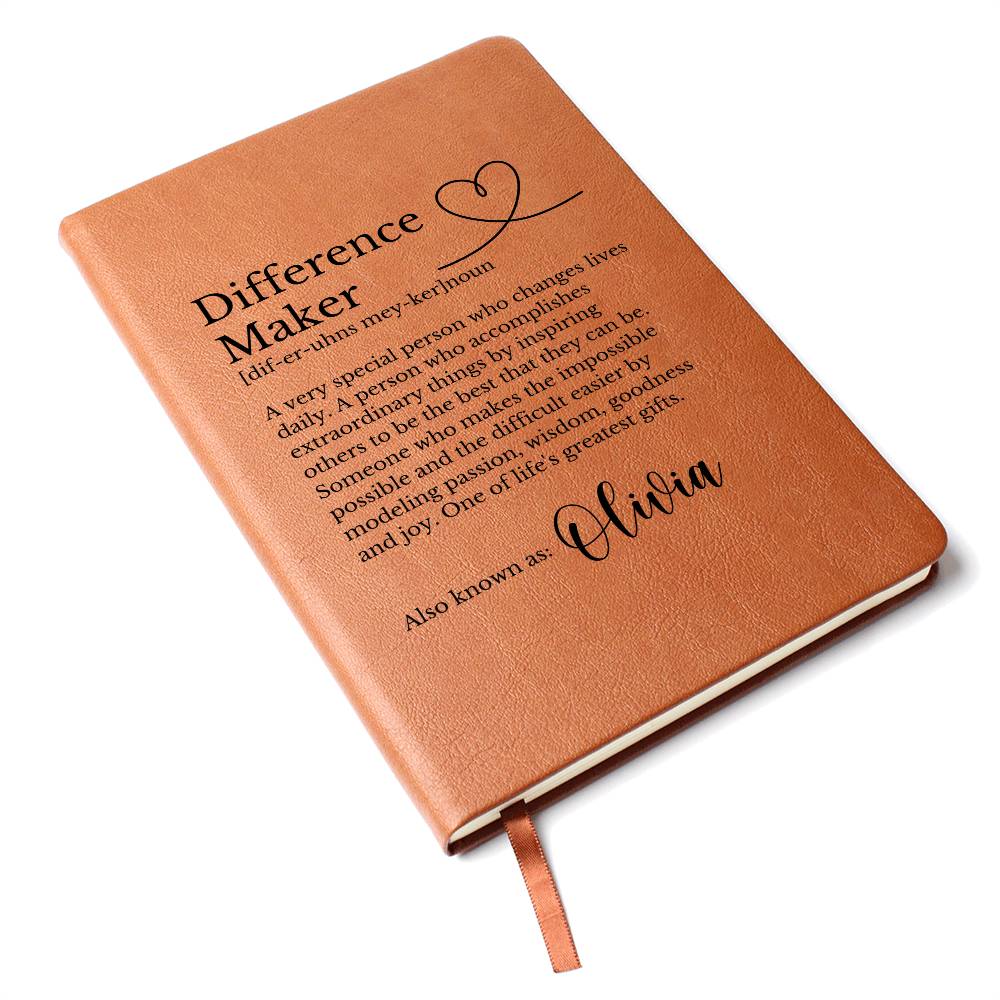 Difference
Maker
[dif-er-uhns mey-ker]noun
A very special person who changes lives
daily. A person who accomplishes
extraordinary things by inspiring
others to be the best that they can be.
Someone who makes the impossible
possible and the difficult easier by
modeling passion, wisdom, goodness
and joy. One of life's greatest gifts.
Also known as: Olivia